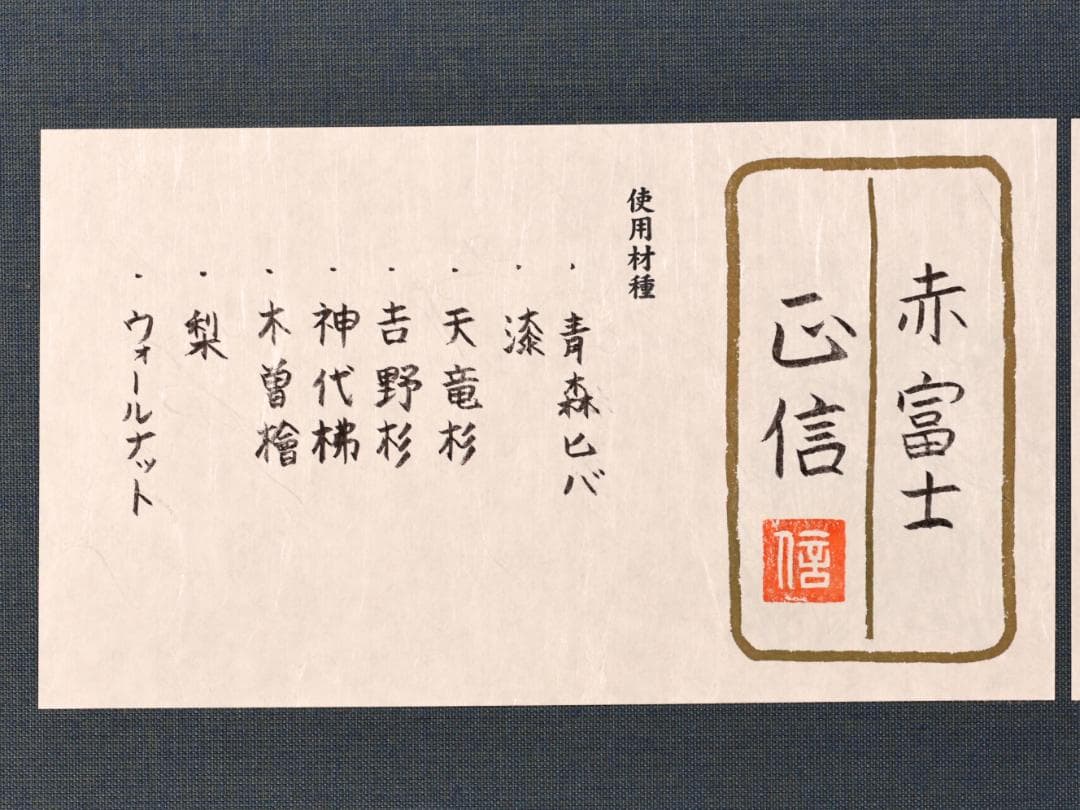 赤富士
正信
信
使用材種
・青森ヒバ
・漆
・天竜杉
・吉野杉
・神代梻
・木曽檜
・梨
・ウォールナット